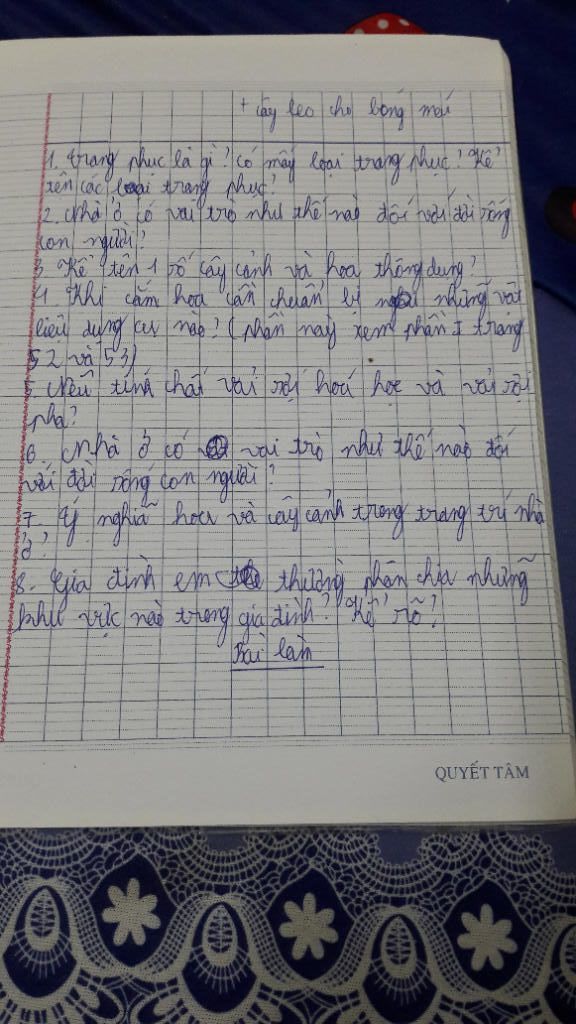 + cây leo cho bóng mát
1. Trang phục là gì? Có mấy loại trang phục? Kể
tên các loại trang phục?
2. Nhà ở có vai trò như thế nào đối với đời sống
con người?
3. Kể tên 1 số cây cảnh và hoa thông dụng?
4. Khi cắm hoa cần chuẩn bị những vật
liệu dụng cụ nào? (phần này xem phần I trang
52 và 53)
5. Nêu tính chất vải sợi hoá học và vải sợi
pha?
6. Nhà ở có vai trò như thế nào đối
với đời sống con người?
7. Ý nghĩa hoa và cây cảnh trong trang trí nhà
ở?
8. Gia đình em thường phân chia những
khu vực nào trong gia đình? Kể rõ?
Bài làm
QUYẾT TÂM